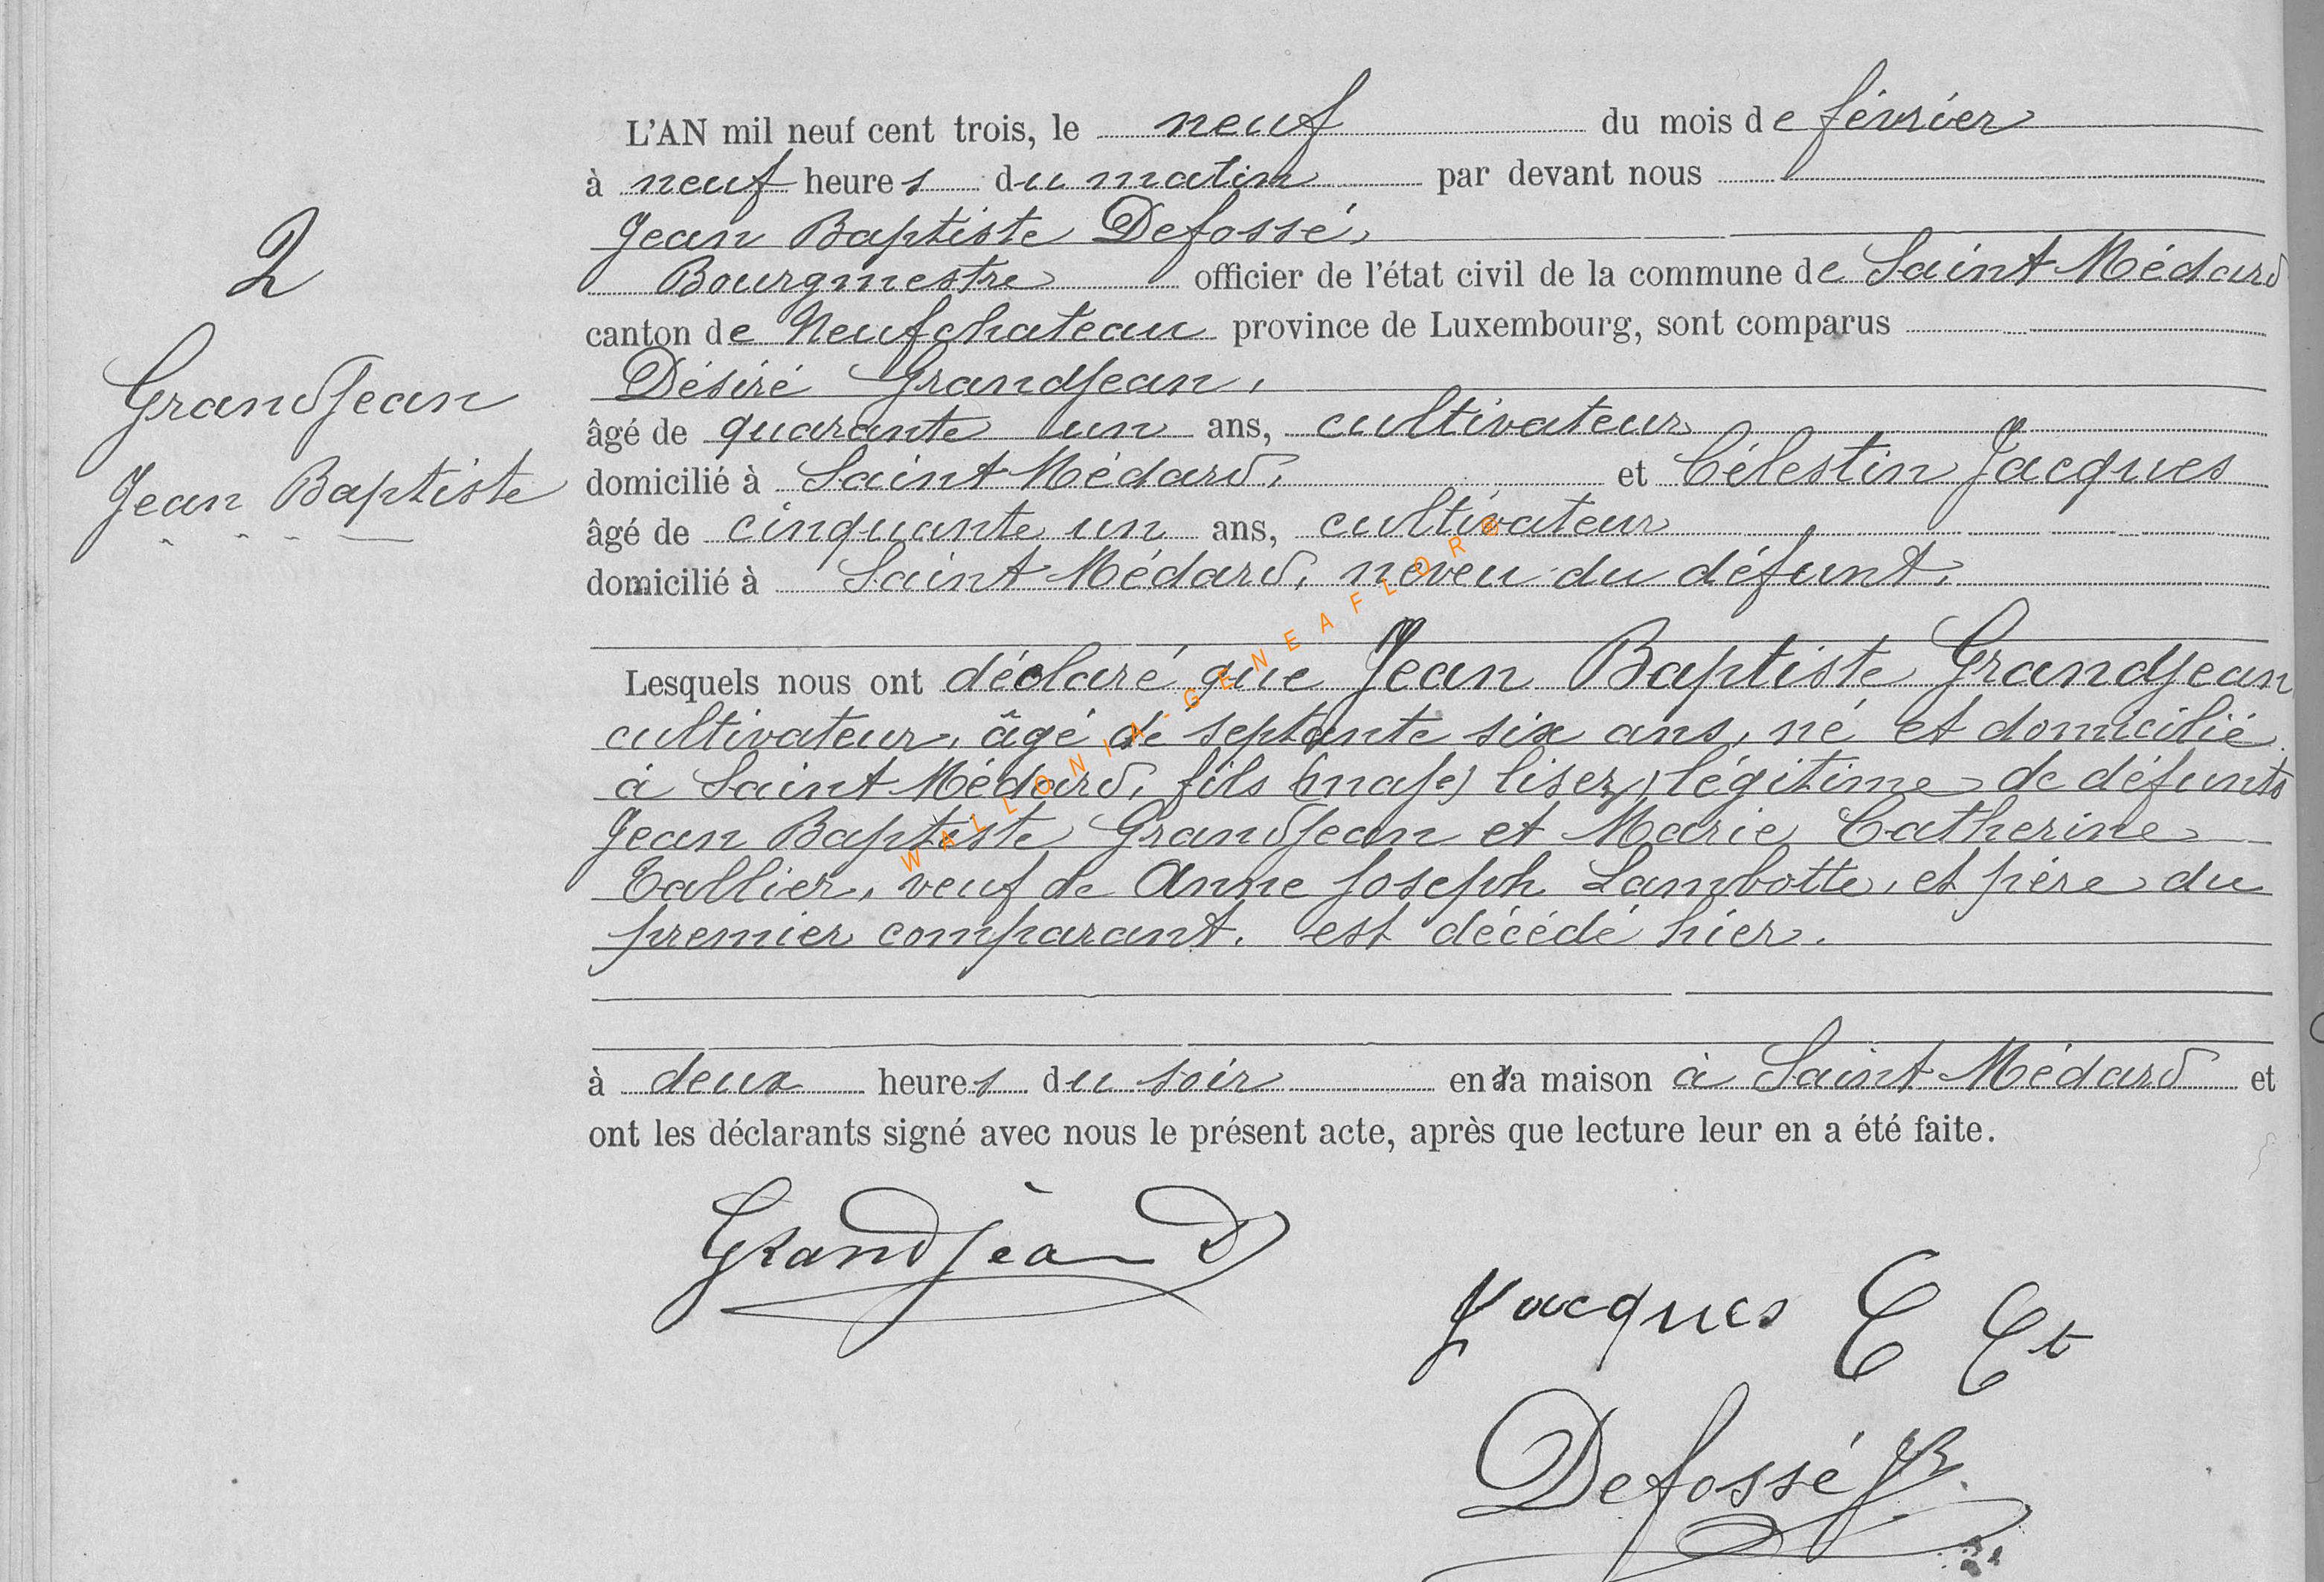 L'AN mil neuf cent trois, le neuf du mois de février
à neuf heures du matin par devant nous
Jean Baptiste Defossé,
Bourgmestre officier de l'état civil de la commune de Saint Médard
canton de Neufchateau province de Luxembourg, sont comparus
Désiré Grandjean,
âgé de quarante un ans, cultivateur
domicilié à Saint Médard, et Célestin Jacques
âgé de cinquante un ans, cultivateur
domicilié à Saint Médard, neveu du défunt,
2
Grandjean
Jean Baptiste
Lesquels nous ont déclaré que Jean Baptiste Grandjean
cultivateur, âgé de septante six ans, né et domicilié
à Saint Médard, fils lisez légitime de défunts
Jean Baptiste Grandjean et Marie Catherine
Tallier, veuf de Anne Joseph Lambotte, et père du
premier comparant, est décédé hier.
à deux heures du soir en sa maison à Saint Médard et
ont les déclarants signé avec nous le présent acte, après que lecture leur en a été faite.
Grandjean D
Jacques C Ct
Defossé JB.
WALLONIA-GENEAFLORE